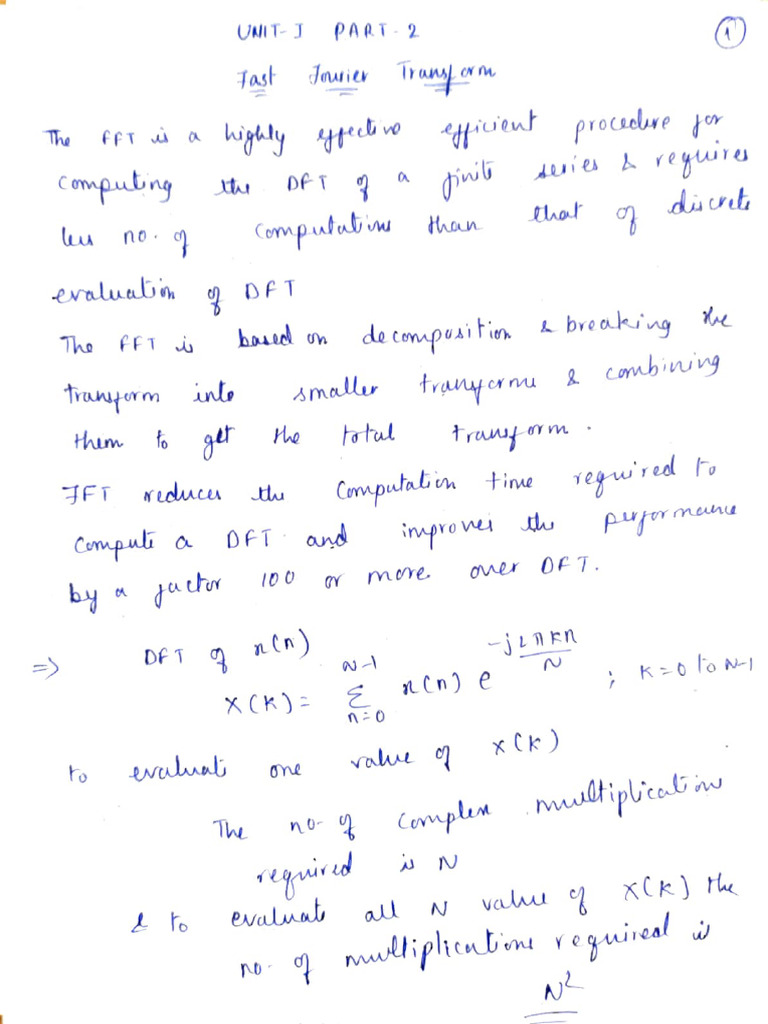 UNIT-I PART-2
1
Fast Fourier Transform
The FFT is a highly effective efficient procedure for
computing the DFT of a finite series & requires
less no. of computations than that of discrete
evaluation of DFT
The FFT is based on decomposition & breaking the
transform into smaller transforms & combining
them to get the total transform.
FFT reduces the computation time required to
compute a DFT and improves the performance
by a factor 100 or more over DFT.
=> DFT of x(n)
X(K) = N-1 Σ n=0 x(n) e -j2πkn/N ; K=0 to N-1
to evaluate one value of x(k)
The no. of complex multiplication
required is N
& to evaluate all N value of X(K) the
no. of multiplications required is
N²